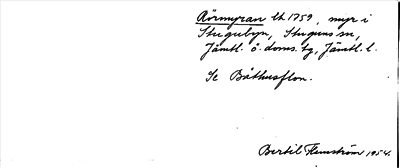 Rörmyran lt 1759, myr i
Stugubyn, Stuguns sn,
Jämtl. ö. doms. tg, Jämtl. l.
Se Båthusflon.
Bertil Flemström 1954.